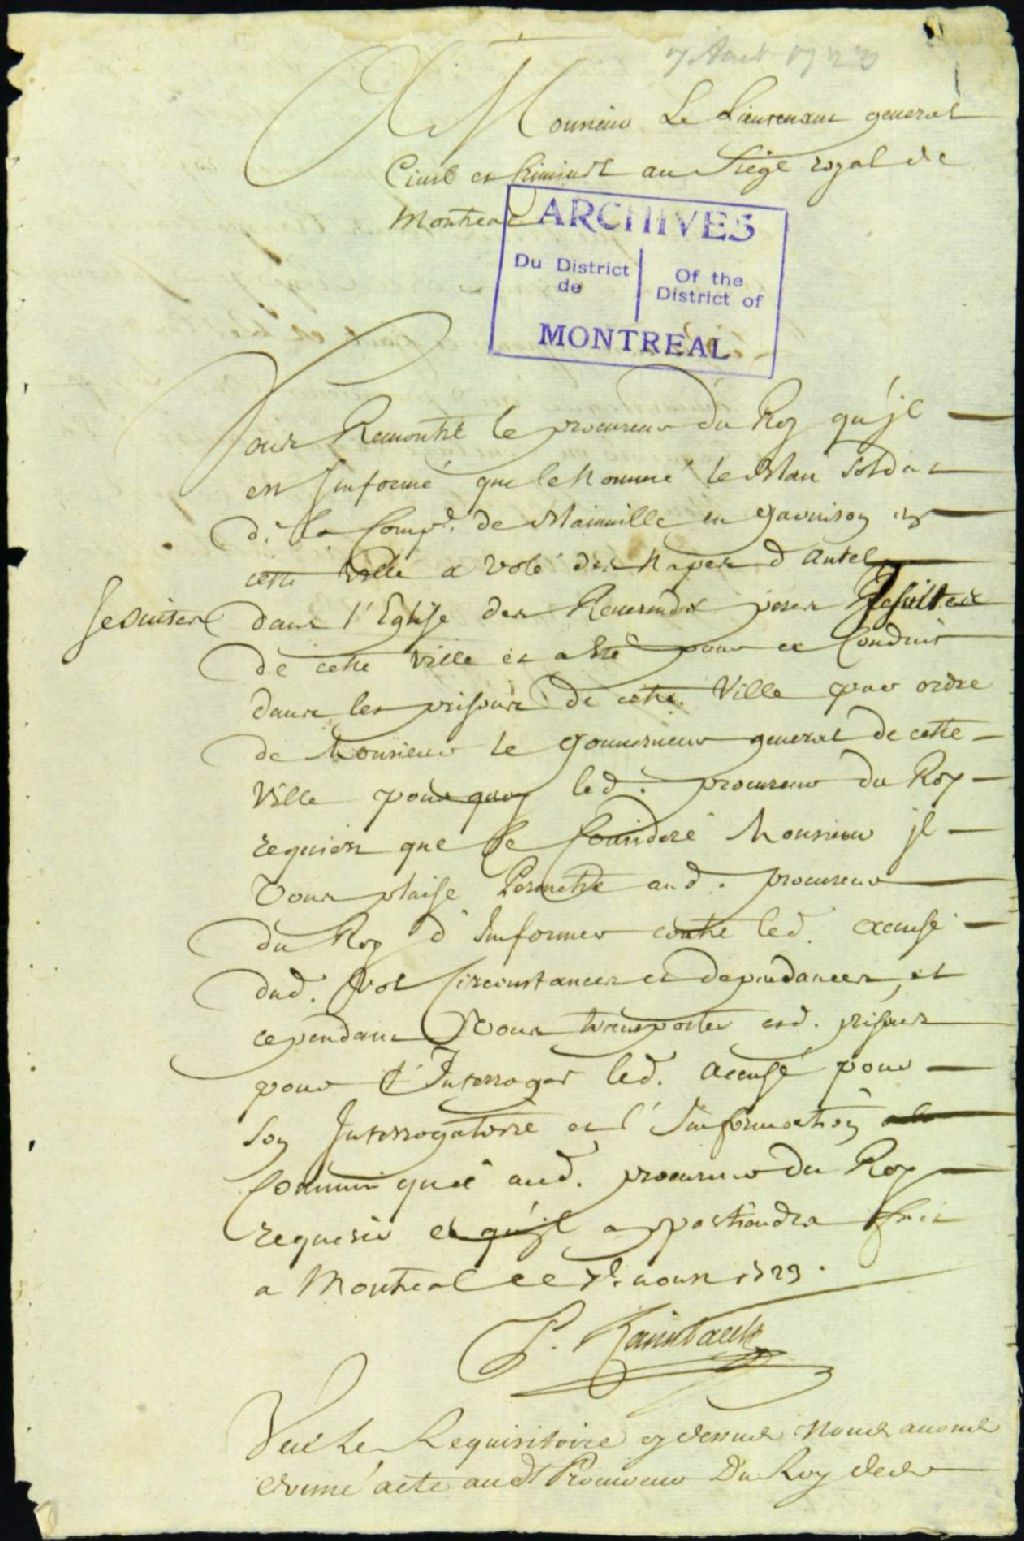 7 Aout 1723
A Monsieur Le Lieutenant general
Civil et Criminel au Siege royal de
Montreal
ARCHIVES
Du District de
Of the District of
MONTREAL
Vous Remontre le procureur du Roy qu'jl
est Jnformé que le Nommé le Blan soldat
de la Comp.e de Blainville en garnison en
cette ville a volé des Napes d'Autel
Jesuistes
dans l'Eglise des Reverends peres Jesuittes
de cette Ville et a Eté pour ce Conduit
dans les prisons de cette Ville par ordre
de Monsieur le Gouverneur general de cette
Ville pour quoy led. procureur du Roy
requiert que Ce Consideré Monsieur jl
Vous plaise Permettre aud. procureur
du Roy d'Jnformer contre led. accusé
dud. Vol Circonstances et dependances, et
cependant Vous transporter esd. prisons
pour Y Jnterroger led. accusé pour
son Jnterrogatoire et l'Jnformation
Communiqué aud. procureur du Roy
requerir ce qu'jl appartiendra fait
a Montreal ce 7e. aoust 1723.
P. Raimbault
Veu Le Requisitoire cy dessus Nous avons
donné acte aud.t Procureur Du Roy de